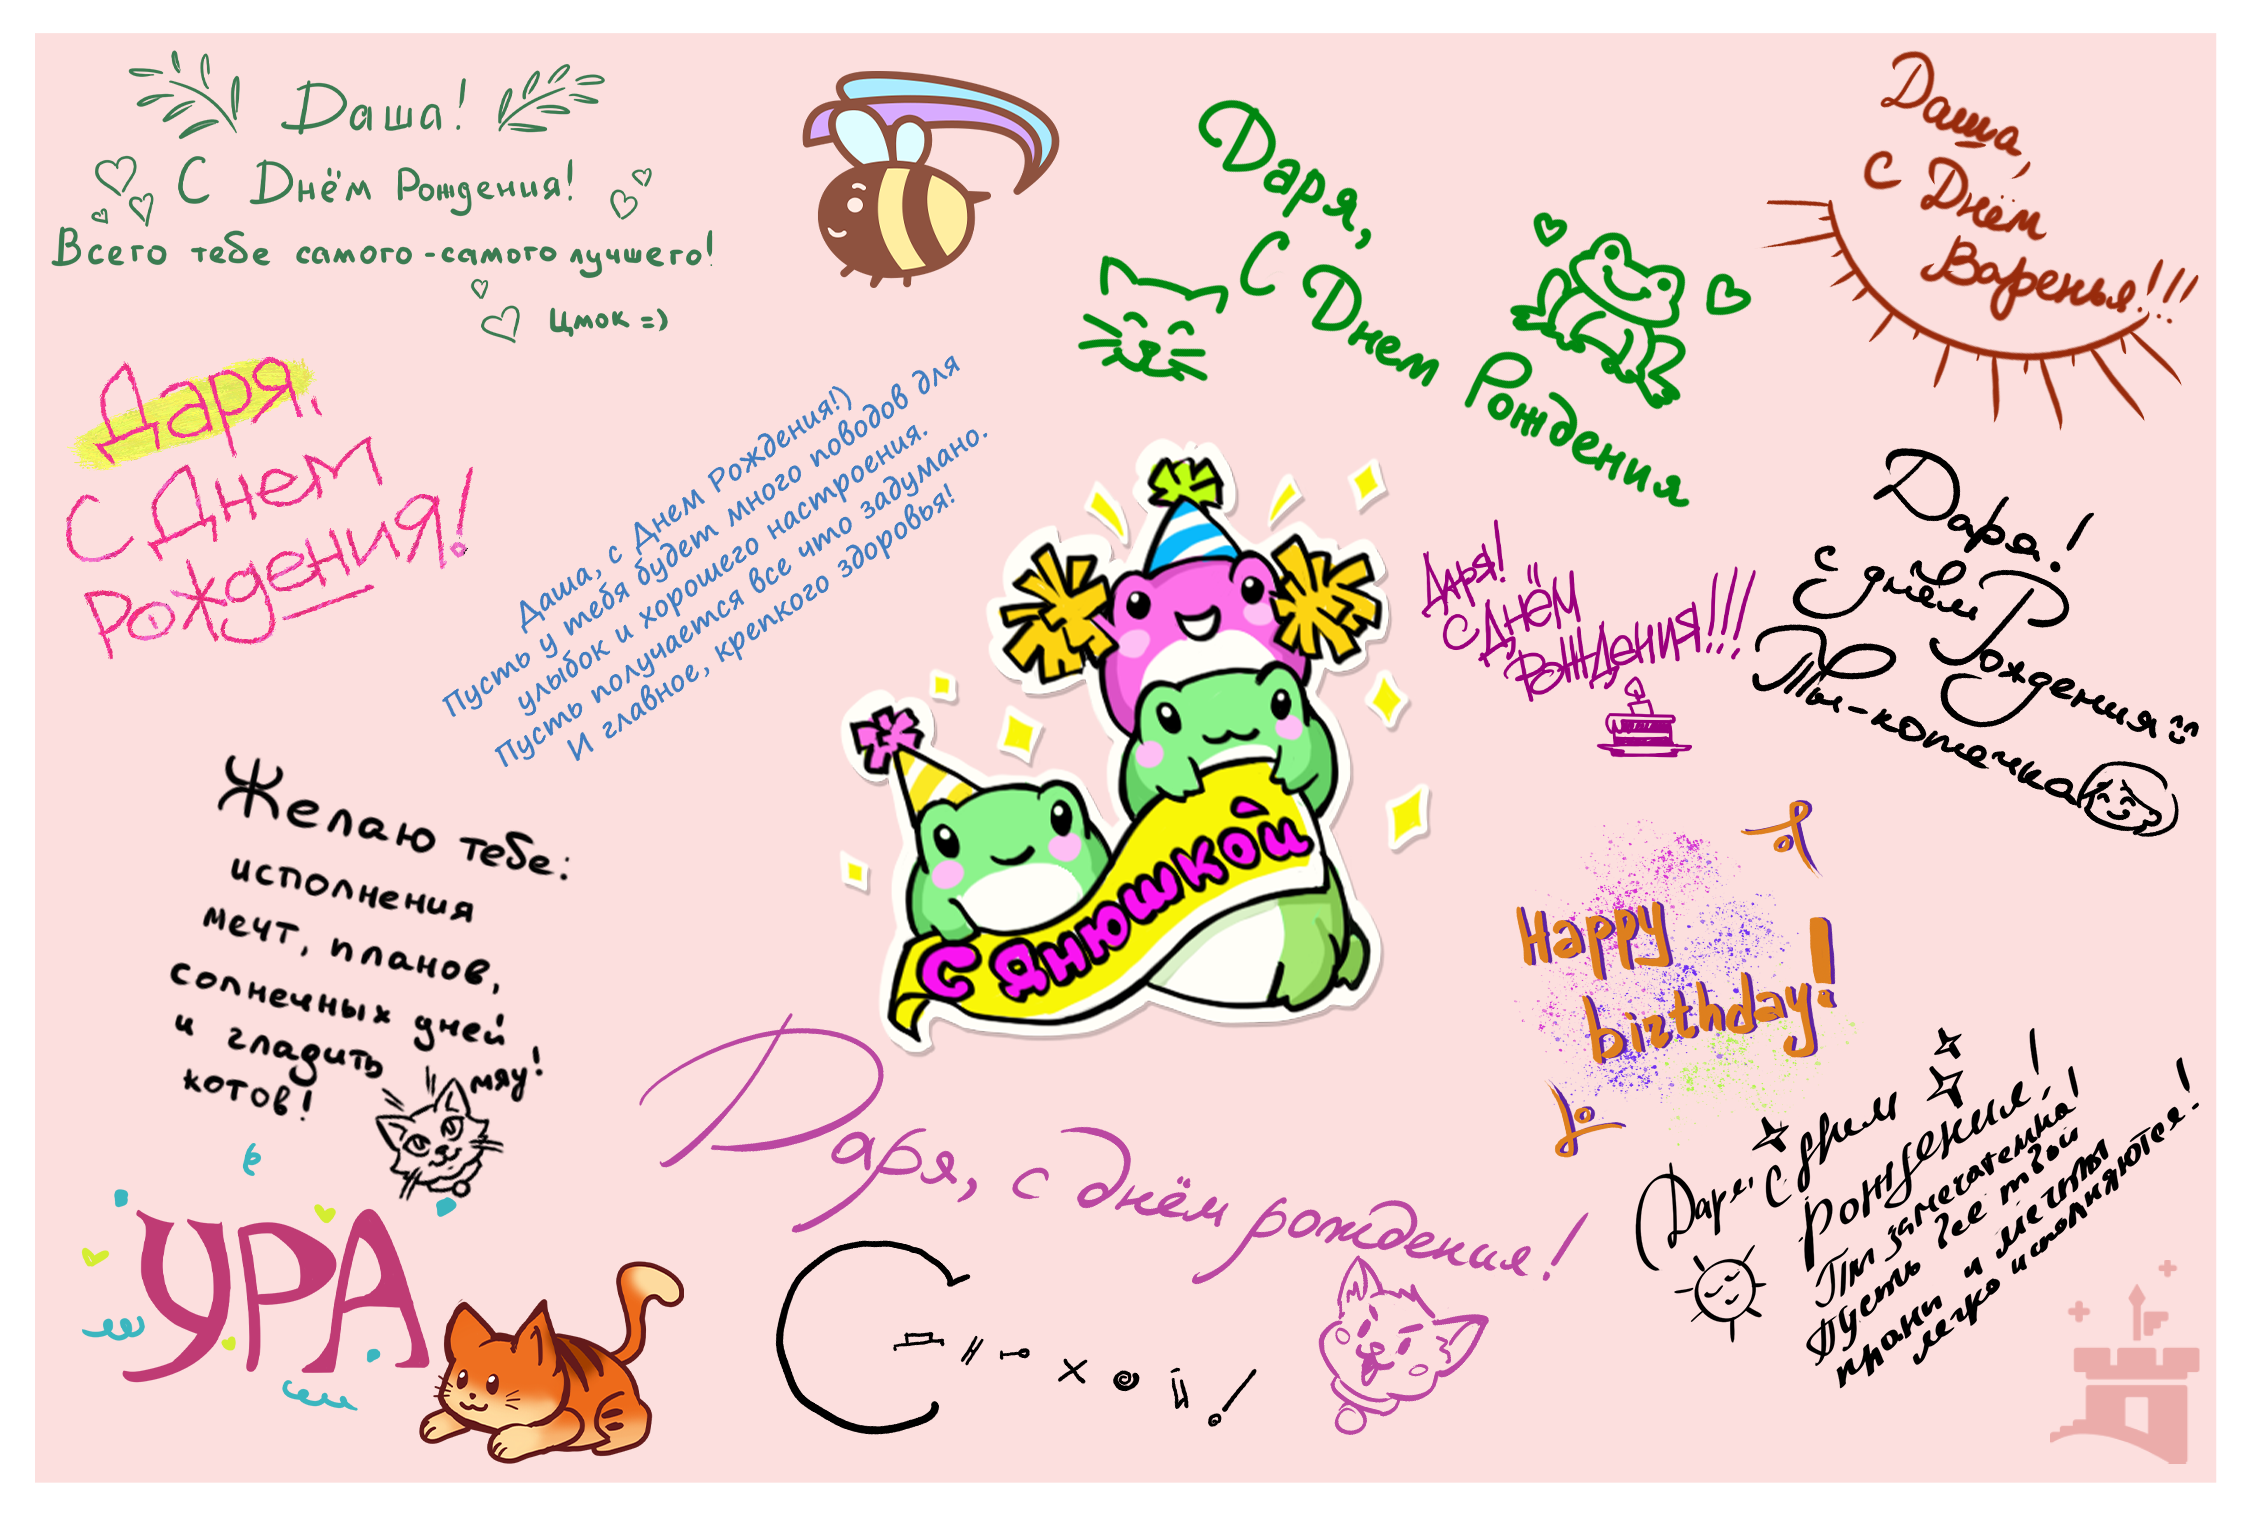 Даша!
С Днём Рождения!
Всего тебе самого-самого лучшего!
Цмок =)
Даря,
С Днем
Рождения
Даша,
С Днём
Варенья!!!
Даря,
С Днем
Рождения!
Даша, с Днем Рождения!)
Пусть у тебя будет много поводов для
улыбок и хорошего настроения.
Пусть получается все что задумано.
И главное, крепкого здоровья!
Даря!
С Днём
Рождения!!!
Даря!
С днём
Рождения
Ты-котечка
С днюшкой
Желаю тебе:
исполнения
мечт, планов,
солнечных дней
и гладить
котов!
мяу!
Happy
birthday!
Даря, с днём рождения!
УРА
С днюхой!
Даря,
с днем
рождения!
Ты замечательна!
Пусть все твои
планы и мечты
легко исполняются!